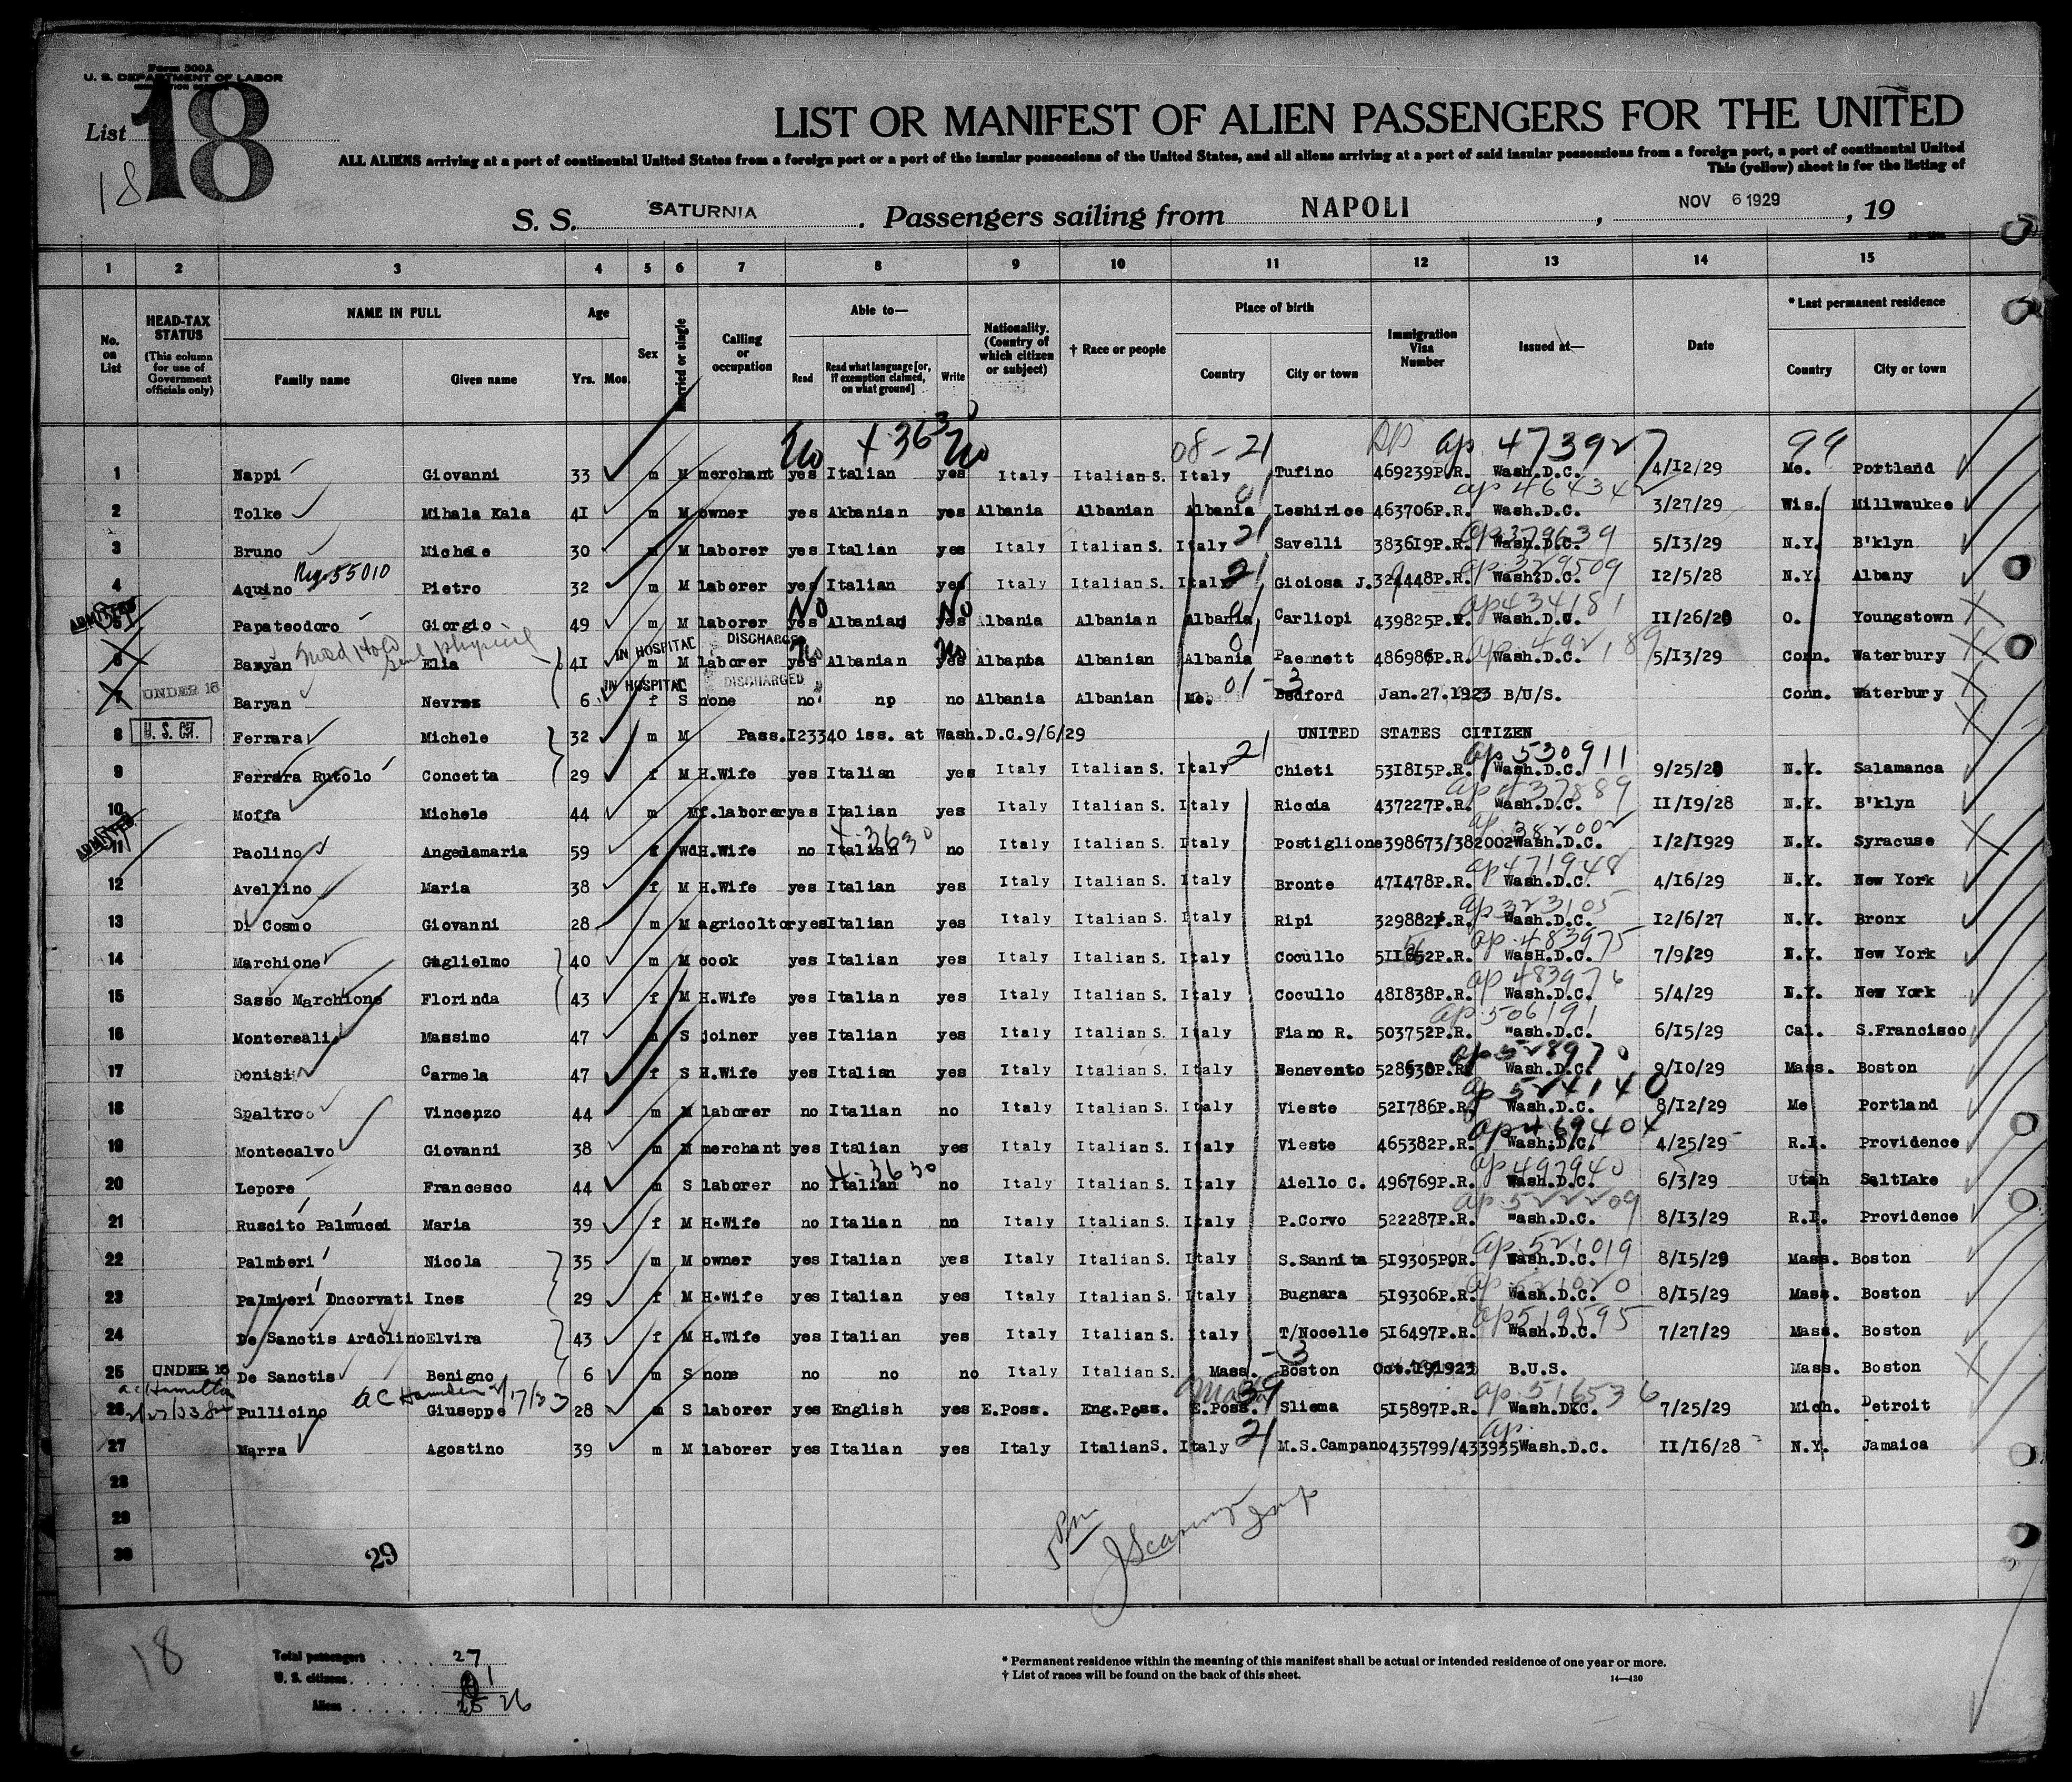 Form 500A
U. S. DEPARTMENT OF LABOR
List 18
18
LIST OR MANIFEST OF ALIEN PASSENGERS FOR THE UNITED
ALL ALIENS arriving at a port of continental United States from a foreign port or a port of the insular possessions of the United States, and all aliens arriving at a port of said insular possessions from a foreign port, a port of continental United
This (yellow) sheet is for the listing of
S. S. SATURNIA. Passengers sailing from NAPOLI, NOV 6 1929, 19
1 2 3 4 5 6 7 8 9 10 11 12 13 14 15
No. on List
HEAD-TAX STATUS (This column for use of Government officials only)
NAME IN FULL Family name Given name
Age Yrs. Mos.
Sex
Married or single
Calling or occupation
Able to— Read Read what language [or, if exemption claimed, on what ground] Write
Nationality. (Country of which citizen or subject)
† Race or people
Place of birth Country City or town
Immigration Visa Number
Issued at—
Date
* Last permanent residence Country City or town
No + 3630 No 08-21 ap 473927 99
1 Nappi Giovanni 33 m M merchant yes Italian yes Italy Italian S. Italy Tufino 469239P.R. Wash.D.C. 4/12/29 Me. Portland
01 ap 464342
2 Tolke Mihala Kala 41 m M owner yes Akbanian yes Albania Albanian Albania Leshirice 463706P.R. Wash.D.C. 3/27/29 Wis. Millwaukee
21 ap 379639
3 Bruno Michele 30 m M laborer yes Italian yes Italy Italian S. Italy Savelli 383619P.R. Wash.D.C. 5/13/29 N.Y. B'klyn
Reg. 55010 21 ap 329509
4 Aquino Pietro 32 m M laborer yes Italian yes Italy Italian S. Italy Gioiosa J. 324448P.R. Wash.D.C. 12/5/28 N.Y. Albany
ADMITTED No No 01 ap 434181
5 Papateodoro Giorgio 49 m M laborer yes Albanian yes Albania Albanian Albania Carliopi 439825P.R. Wash.D.C. 11/26/28 O. Youngstown
IN HOSPITAL DISCHARGED No No 01 ap 492189
6 Baryan Elia 41 m M laborer yes Albanian yes Albania Albanian Albania Paennett 486986P.R. Wash.D.C. 5/13/29 Conn. Waterbury
UNDER 16 IN HOSPITAL DISCHARGED 01-3
7 Baryan Nevres 6 f S none no np no Albania Albanian Me. Bedford Jan.27.1923 B/U/S. Conn. Waterbury
8 U. S. CIT. Ferrara Michele 32 m M Pass.123340 iss. at Wash.D.C.9/6/29 UNITED STATES CITIZEN
21 ap 530911
9 Ferrara Rutolo Concetta 29 f M H.Wife yes Italian yes Italy Italian S. Italy Chieti 531815P.R. Wash.D.C. 9/25/29 N.Y. Salamanca
ap 437889
10 Moffa Michele 44 m M f.laborer yes Italian yes Italy Italian S. Italy Riccia 437227P.R. Wash.D.C. 11/19/28 N.Y. B'klyn
ADMITTED + 3630 ap 382002
11 Paolino Angelamaria 59 f Wd H.Wife no Italian no Italy Italian S. Italy Postiglione 398673/382002 Wash.D.C. 1/2/1929 N.Y. Syracuse
ap 471948
12 Avellino Maria 38 f M H.Wife yes Italian yes Italy Italian S. Italy Bronte 471478P.R. Wash.D.C. 4/16/29 N.Y. New York
ap 323105
13 Di Cosmo Giovanni 28 m M agricoltor yes Italian yes Italy Italian S. Italy Ripi 329882P.R. Wash.D.C. 12/6/27 N.Y. Bronx
ap 483975
14 Marchione Guglielmo 40 m M cook yes Italian yes Italy Italian S. Italy Cocullo 511662P.R. WasH.D.C. 7/9/29 N.Y. New York
ap 483976
15 Sasso Marchione Florinda 43 f M H.Wife yes Italian yes Italy Italian S. Italy Cocullo 481838P.R. Wash.D.C. 5/4/29 N.Y. New York
ap 506191
16 Montereali Massimo 47 m S joiner yes Italian yes Italy Italian S. Italy Fiano R. 503752P.R. Wash.D.C. 6/15/29 Cal. S.Francisco
ap 528970
17 Donisi Carmela 47 f S H.Wife yes Italian yes Italy Italian S. Italy Benevento 528630P.R. Wash.D.C. 9/10/29 Mass. Boston
ap 524140
18 Spaltro Vincenzo 44 m M laborer no Italian no Italy Italian S. Italy Vieste 521786P.R. Wash.D.C. 8/12/29 Me Portland
ap 469404
19 Montecalvo Giovanni 38 m M merchant yes Italian yes Italy Italian S. Italy Vieste 465382P.R. Wash.D.C. 4/25/29 R.I. Providence
+ 3630 ap 497940
20 Lepore Francesco 44 m S laborer no Italian no Italy Italian S. Italy Aiello C. 496769P.R. Wash.D.C. 6/3/29 Utah SaltLake
ap 522209
21 Ruscito Palmucci Maria 39 f M H.Wife no Italian no Italy Italian S. Italy P.Corvo 522287P.R. Wash.D.C. 8/13/29 R.I. Providence
ap 521019
22 Palmieri Nicola 35 m M owner yes Italian yes Italy Italian S. Italy S.Sannita 519305P.R. Wash.D.C. 8/15/29 Mass. Boston
ap 521020
23 Palmieri Incorvati Ines 29 f M H.Wife yes Italian yes Italy Italian S. Italy Bugnara 519306P.R. Wash.D.C. 8/15/29 Mass. Boston
ap 519595
24 De Sanctis Ardolino Elvira 43 f M H.Wife yes Italian yes Italy Italian S. Italy T/Nocelle 516497P.R. Wash.D.C. 7/27/29 Mass. Boston
-3
25 UNDER 16 De Sanctis Benigno 6 m S none no no no Italy Italian S. Mass. Boston Oct.19,1923 B.U.S. Mass. Boston
ap 516536
26 Pullicino Giuseppe 28 m S laborer yes English yes E.Poss. Eng.Poss. E.Poss. Sliema 515897P.R. Wash.D.C. 7/25/29 Mich. Detroit
21 ap
27 Marra Agostino 39 m M laborer yes Italian yes Italy Italian S. Italy M.S.Campano 435799/433935 Wash.D.C. 11/16/28 N.Y. Jamaica
28
29
30
29
18
Total passengers 27
U. S. citizens 1
Aliens 25 26
* Permanent residence within the meaning of this manifest shall be actual or intended residence of one year or more.
† List of races will be found on the back of this sheet.
14—430